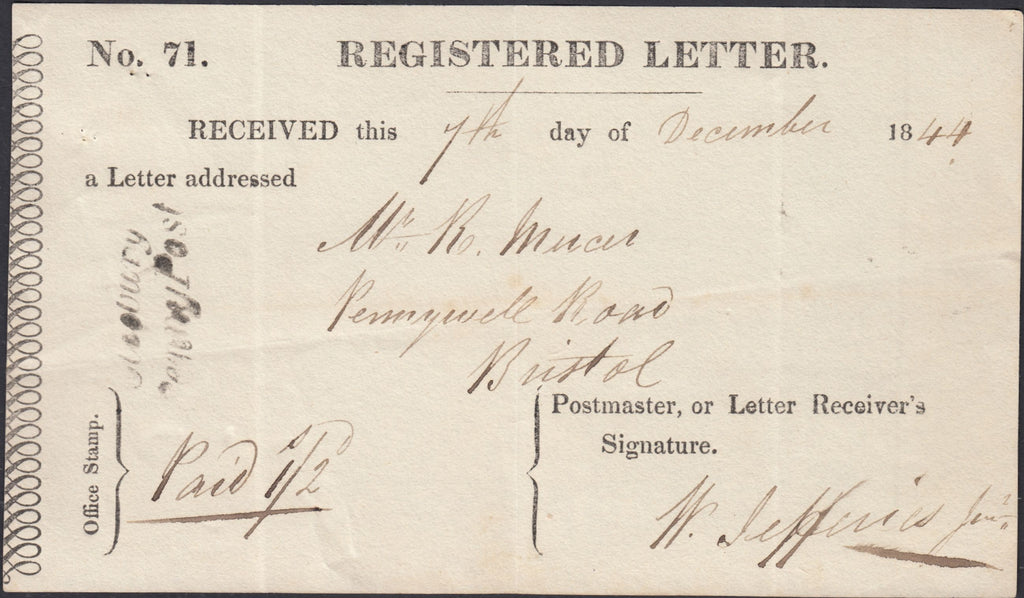 No. 71. REGISTERED LETTER.
RECEIVED this 7th day of December 1844
a Letter addressed
Mr. R. Mercer
Pennywell Road
Bristol
Penny Post
Office Stamp.
Paid 1/2
Postmaster, or Letter Receiver's
Signature.
W. Jefferies Junr.